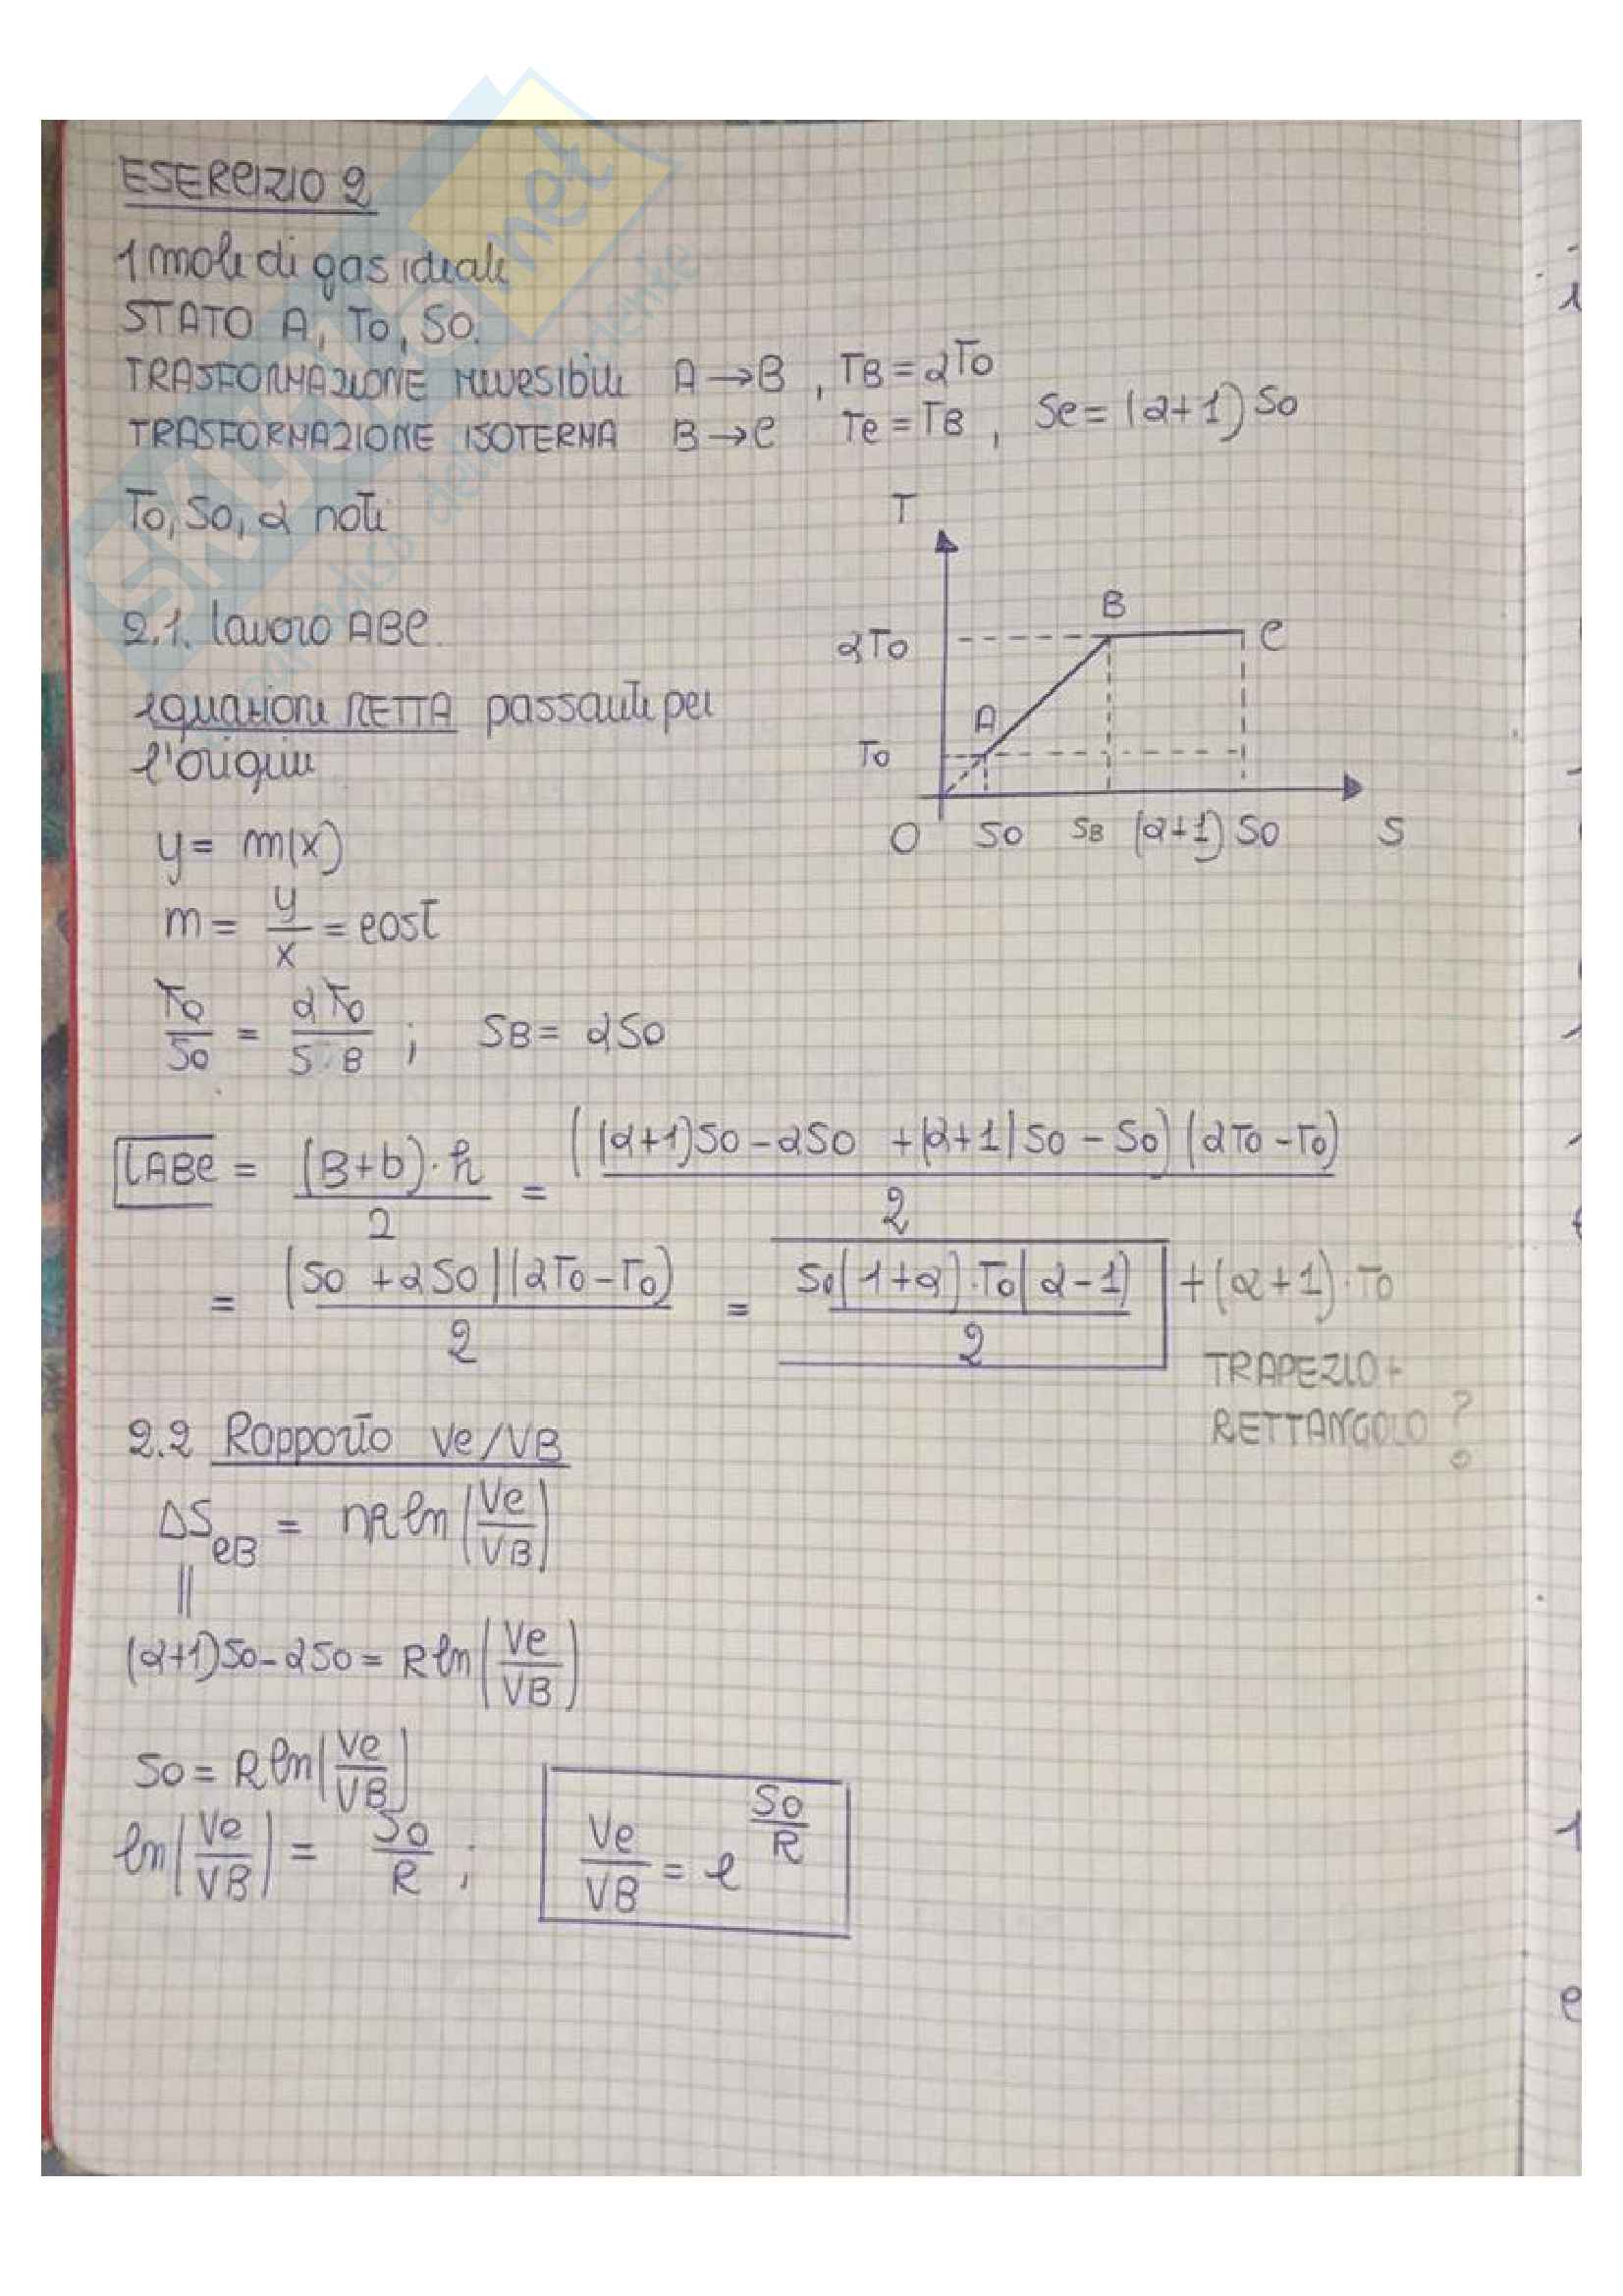 ESERCIZIO 2
1 mole di gas ideale
STATO A, T0, S0.
TRASFORMAZIONE reversibile A → B , TB = αT0
TRASFORMAZIONE ISOTERMA B → C TC = TB , SC = (α+1) S0
T0, S0, α noti
2.1. lavoro ABC
equazione RETTA passante per
l'origine
T
αT0
B
C
A
T0
O S0 SB (α+1) S0 S
y = m(x)
m = y/x = cost
T0/S0 = αT0/SB ; SB = αS0
LABC = (B+b)·h / 2 = ((α+1)S0 - αS0 + (α+1)S0 - S0) (αT0 - T0) / 2
= (S0 + αS0)(αT0 - T0) / 2 = S0(1+α)·T0(α-1) / 2 + (α+1)·T0
TRAPEZIO +
RETTANGOLO ?
2.2 Rapporto VC/VB
ΔS CB = nR ln (VC/VB)
||
(α+1)S0 - αS0 = R ln (VC/VB)
S0 = R ln (VC/VB)
ln (VC/VB) = S0/R ; VC/VB = e^(S0/R)